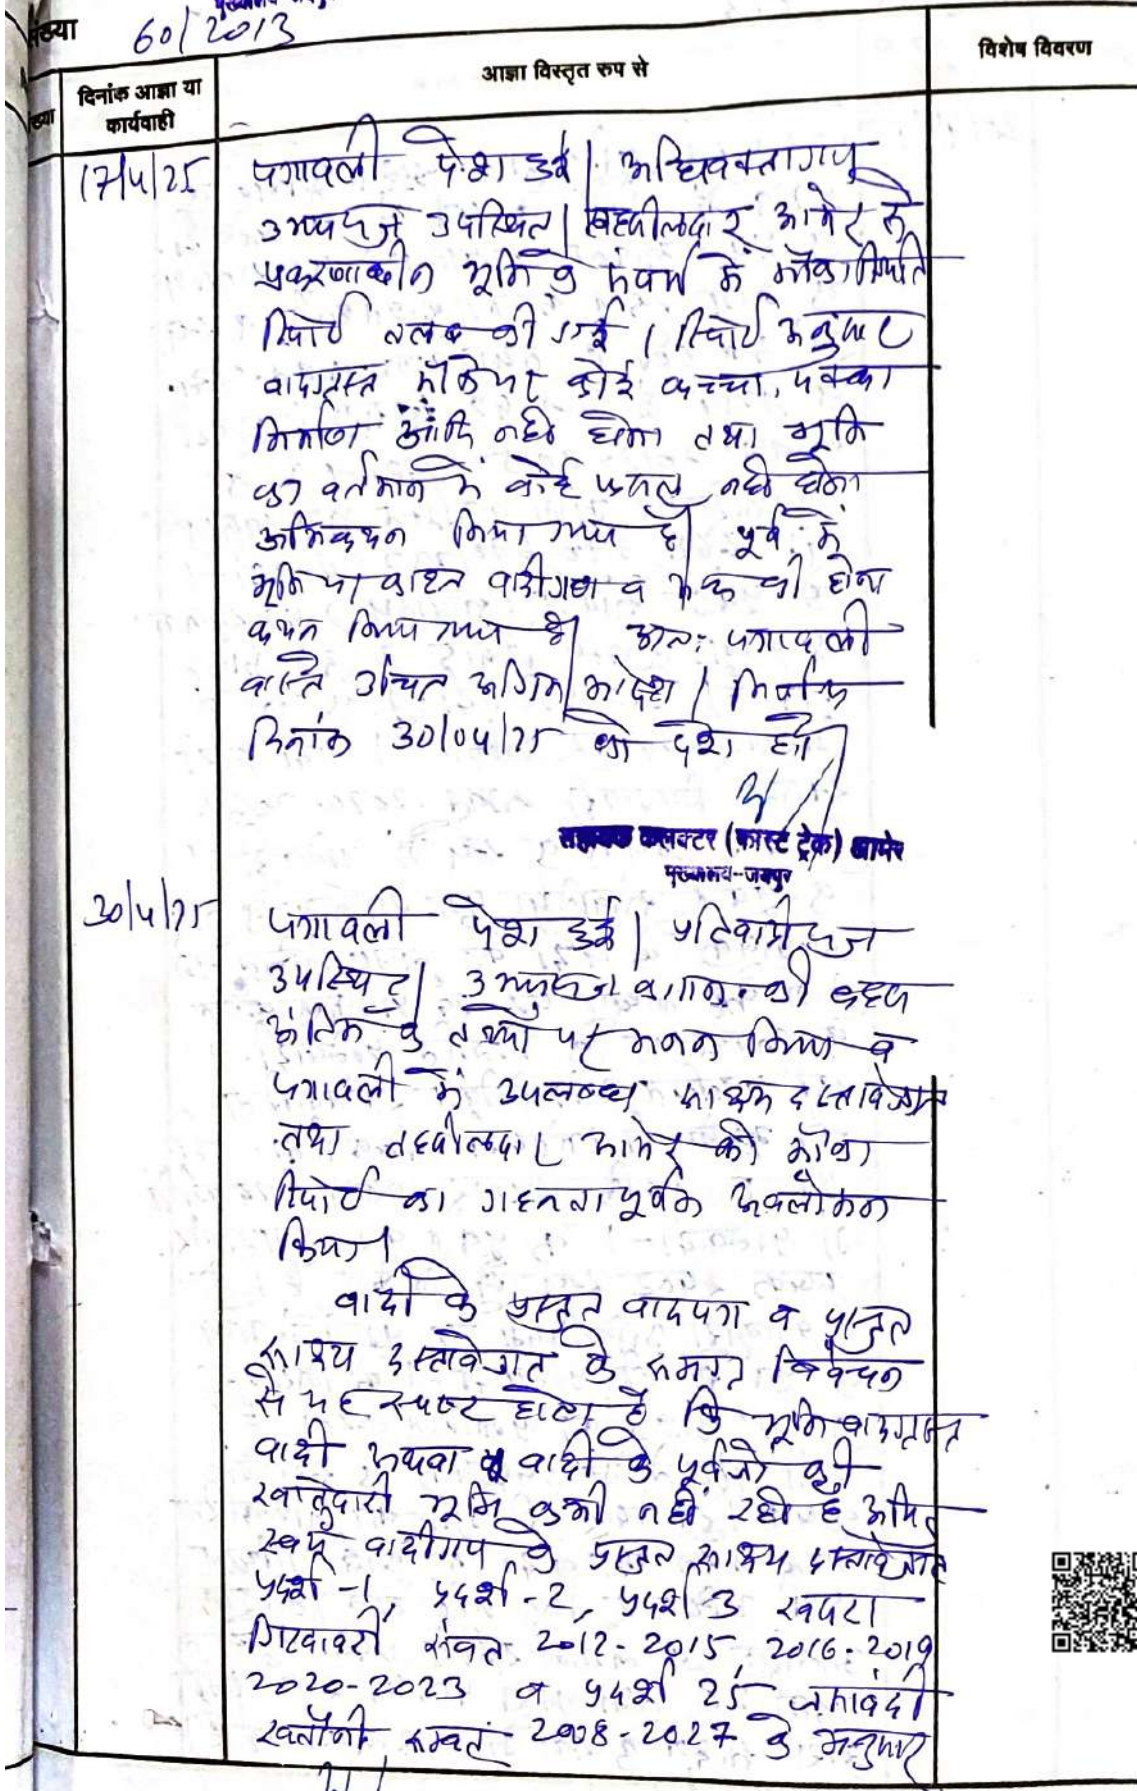 मुख्यालय-जयपुर
संख्या 60/2013
दिनांक आज्ञा या
कार्यवाही
आज्ञा विस्तृत रुप से
विशेष विवरण
17/4/25
पत्रावली पेश हुई। अधिवक्तागण
उभयपक्ष उपस्थित। तहसीलदार आमेर से
प्रकरणाधीन भूमि के संबंध में मौका स्थिति
रिपोर्ट तलब की गई। रिपोर्ट अनुसार
वादग्रस्त मौके पर कोई कच्चा, पक्का
निर्माण आदि नहीं होना तथा भूमि
का वर्तमान में कोई फसल नहीं होना
अभिकथन किया गया है। पूर्व में
भूमि पर काश्त वादीगण व की होना
कथन किया गया है। अतः पत्रावली
वास्ते उचित अग्रिम आदेश / निर्णय
दिनांक 30/04/25 को पेश हो।
सहायक कलक्टर (फास्ट ट्रेक) आमेर
मुख्यालय-जयपुर
30/4/25
पत्रावली पेश हुई। प्रतिवादी पक्ष
उपस्थित। उभयपक्षकारान की बहस
अंतिम के तथ्यों पर मनन किया व
पत्रावली में उपलब्ध साक्ष्य दस्तावेजात
तथा तहसीलदार आमेर की मौका
रिपोर्ट का गहनतापूर्वक अवलोकन
किया।
वादी के प्रस्तुत वादपत्र व प्रस्तुत
साक्ष्य दस्तावेजात के समग्र विवेचन
से यह स्पष्ट होता है कि भूमि वादग्रस्त
वादी अथवा वादी के पूर्वजों की
खातेदारी भूमि कभी नहीं रही है अपितु
स्वयं वादीगण के प्रस्तुत साक्ष्य दस्तावेजात
प्रदर्श -1, प्रदर्श -2, प्रदर्श 3 खसरा
गिरदावरी संवत 2012-2015, 2016-2019
2020-2023 व प्रदर्श 25 जमाबंदी
खतौनी सम्वत् 2008-2027 के अनुसार